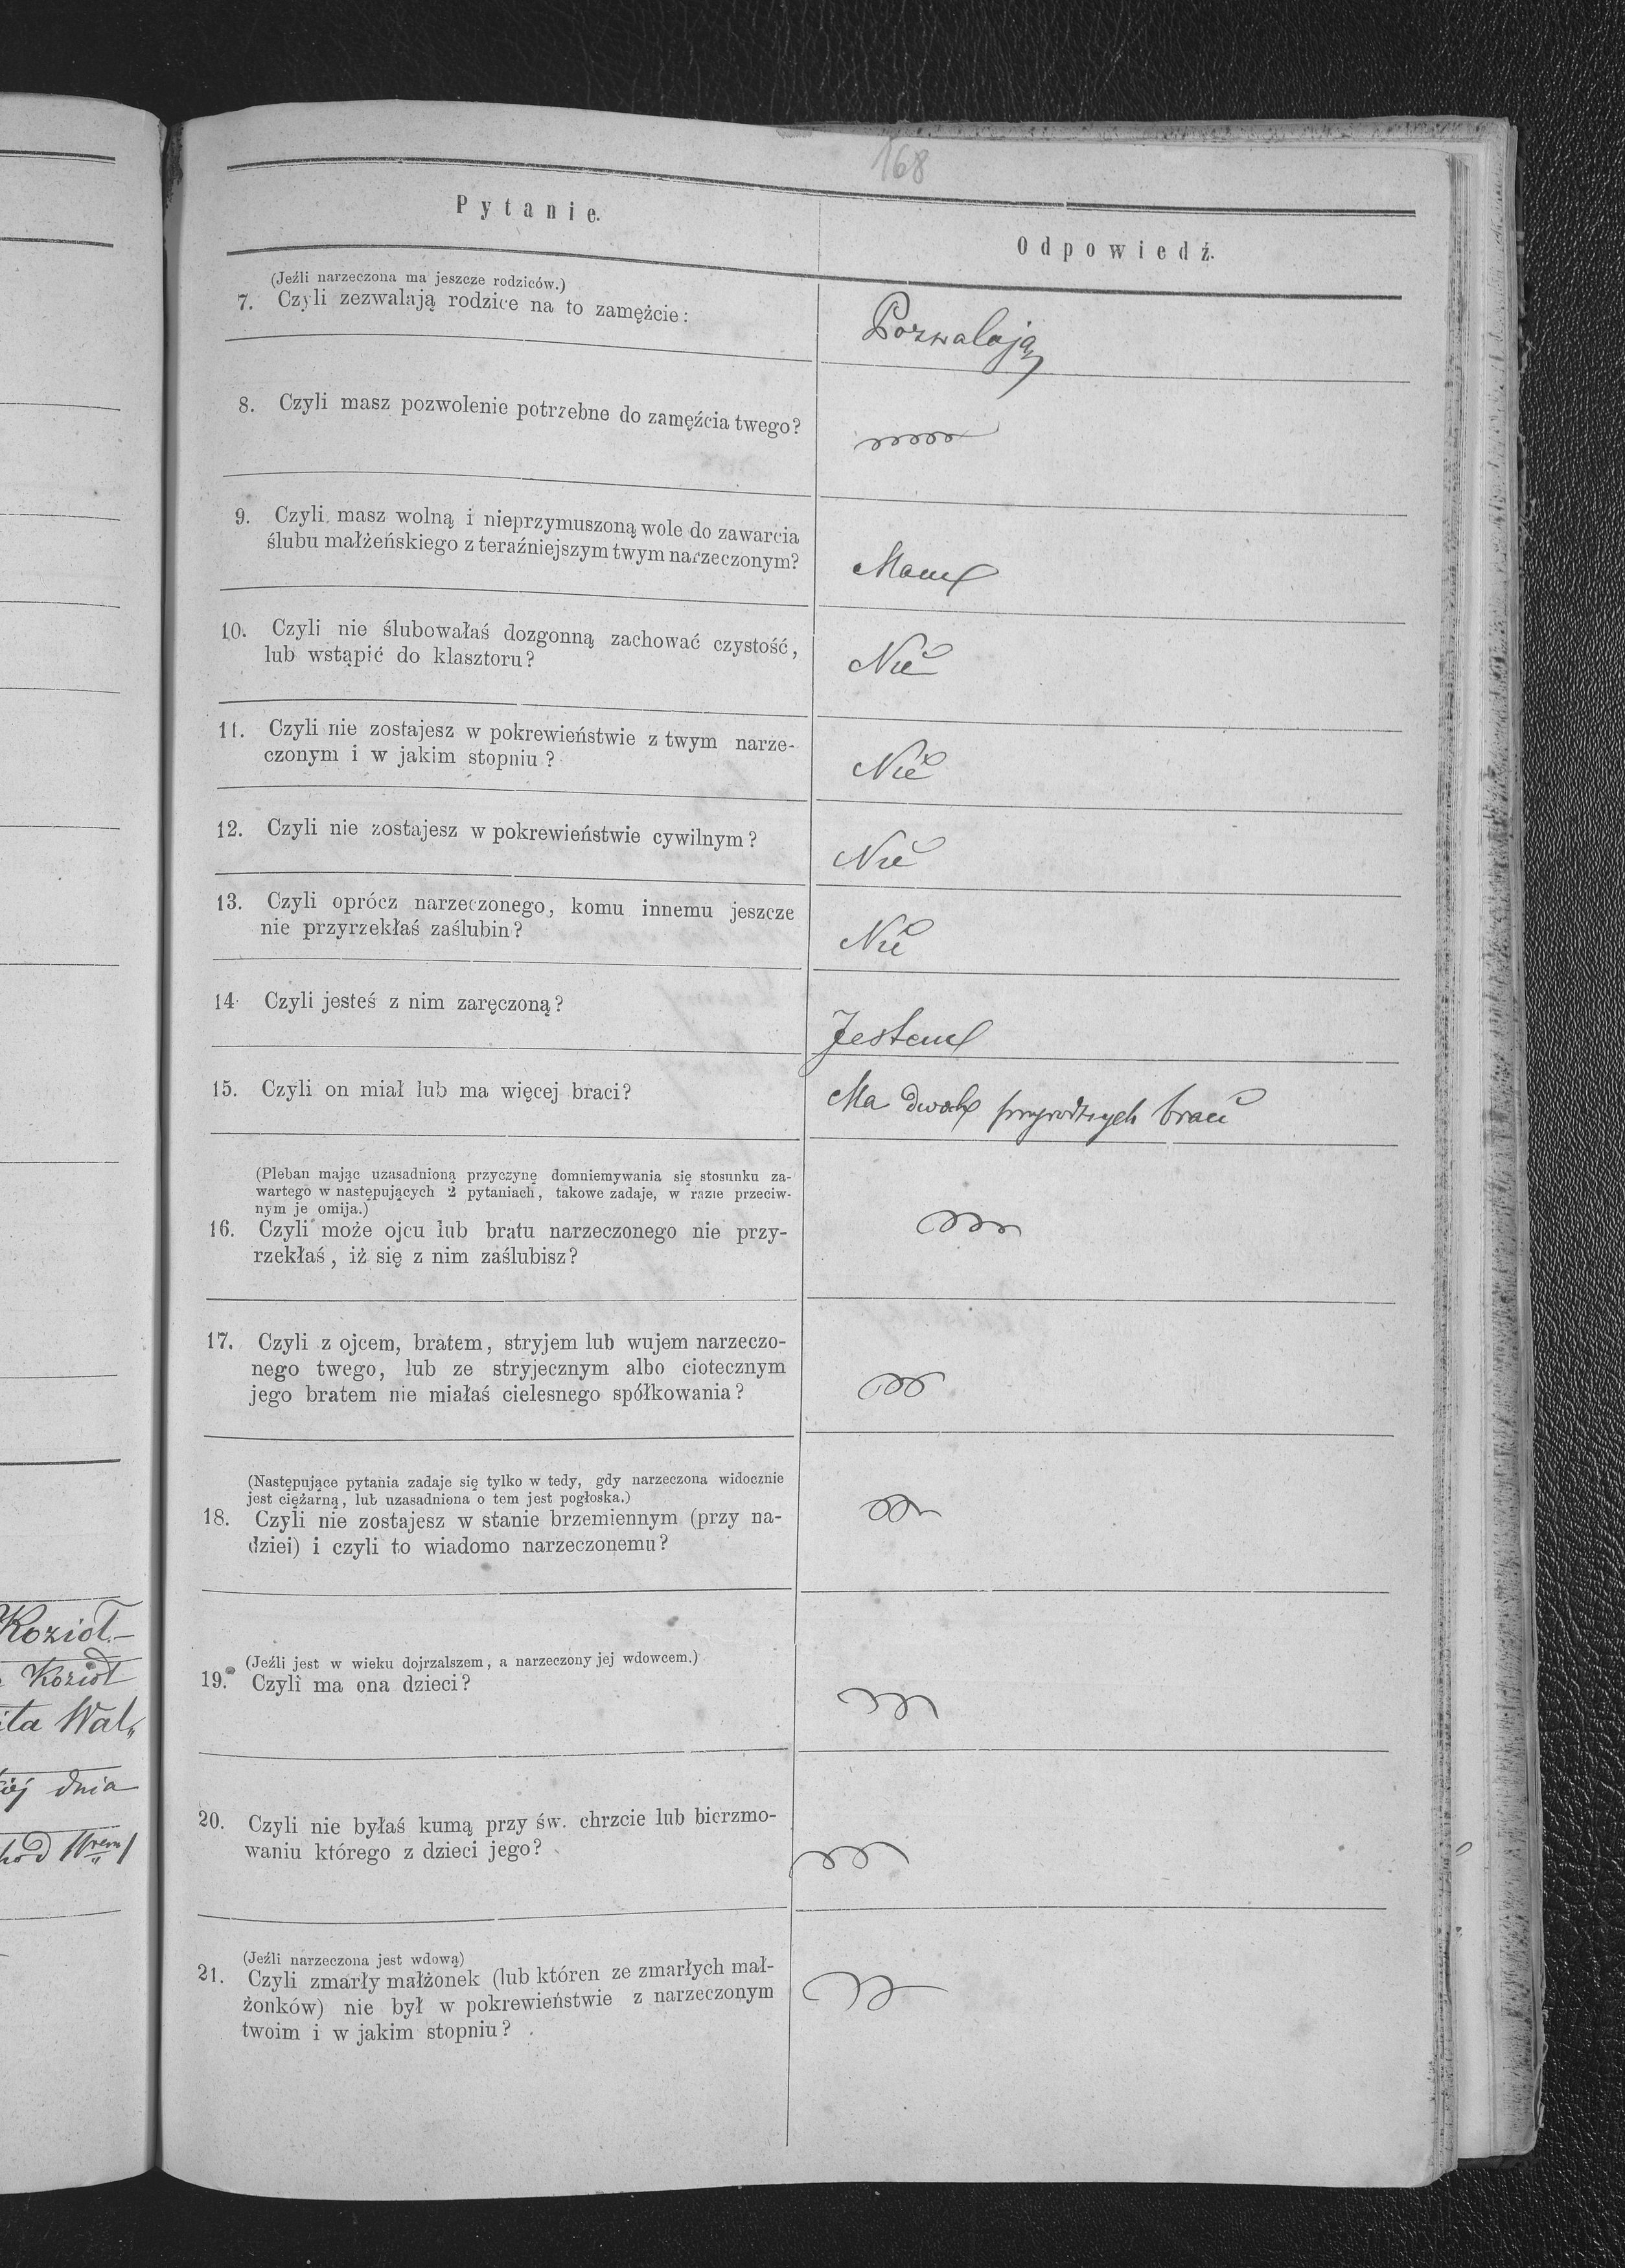 168
Pytanie.
Odpowiedź.
(Jeźli narzeczona ma jeszcze rodziców.)
7. Czyli zezwalają rodzice na to zamężcie:
Pozwalają
8. Czyli masz pozwolenie potrzebne do zamęźcia twego?
9. Czyli masz wolną i nieprzymuszoną wole do zawarcia
ślubu małżeńskiego z teraźniejszym twym narzeczonym?
Mam
10. Czyli nie ślubowałaś dozgonną zachować czystość,
lub wstąpić do klasztoru?
Nie
11. Czyli nie zostajesz w pokrewieństwie z twym narze-
czonym i w jakim stopniu?
Nie
12. Czyli nie zostajesz w pokrewieństwie cywilnym?
Nie
13. Czyli oprócz narzeczonego, komu innemu jeszcze
nie przyrzekłaś zaślubin?
Nie
14 Czyli jesteś z nim zaręczoną?
Jestem
15. Czyli on miał lub ma więcej braci?
Ma dwóch braci
(Pleban mając uzasadnioną przyczynę domniemywania się stosunku za-
wartego w następujących 2 pytaniach, takowe zadaje, w razie przeciw-
nym je omija.)
16. Czyli może ojcu lub bratu narzeczonego nie przy-
rzekłaś, iż się z nim zaślubisz?
17. Czyli z ojcem, bratem, stryjem lub wujem narzeczo-
nego twego, lub ze stryjecznym albo ciotecznym
jego bratem nie miałaś cielesnego spółkowania?
(Następujące pytania zadaje się tylko w tedy, gdy narzeczona widocznie
jest ciężarną, lub uzasadniona o tem jest pogłoska.)
18. Czyli nie zostajesz w stanie brzemiennym (przy na-
dziei) i czyli to wiadomo narzeczonemu?
(Jeźli jest w wieku dojrzalszem, a narzeczony jej wdowcem.)
19. Czyli ma ona dzieci?
20. Czyli nie byłaś kumą przy św. chrzcie lub bierzmo-
waniu którego z dzieci jego?
(Jeźli narzeczona jest wdową)
21. Czyli zmarły małżonek (lub któren ze zmarłych mał-
żonków) nie był w pokrewieństwie z narzeczonym
twoim i w jakim stopniu?
Kozioł
Kozioł
ita Wal„
iej dnia